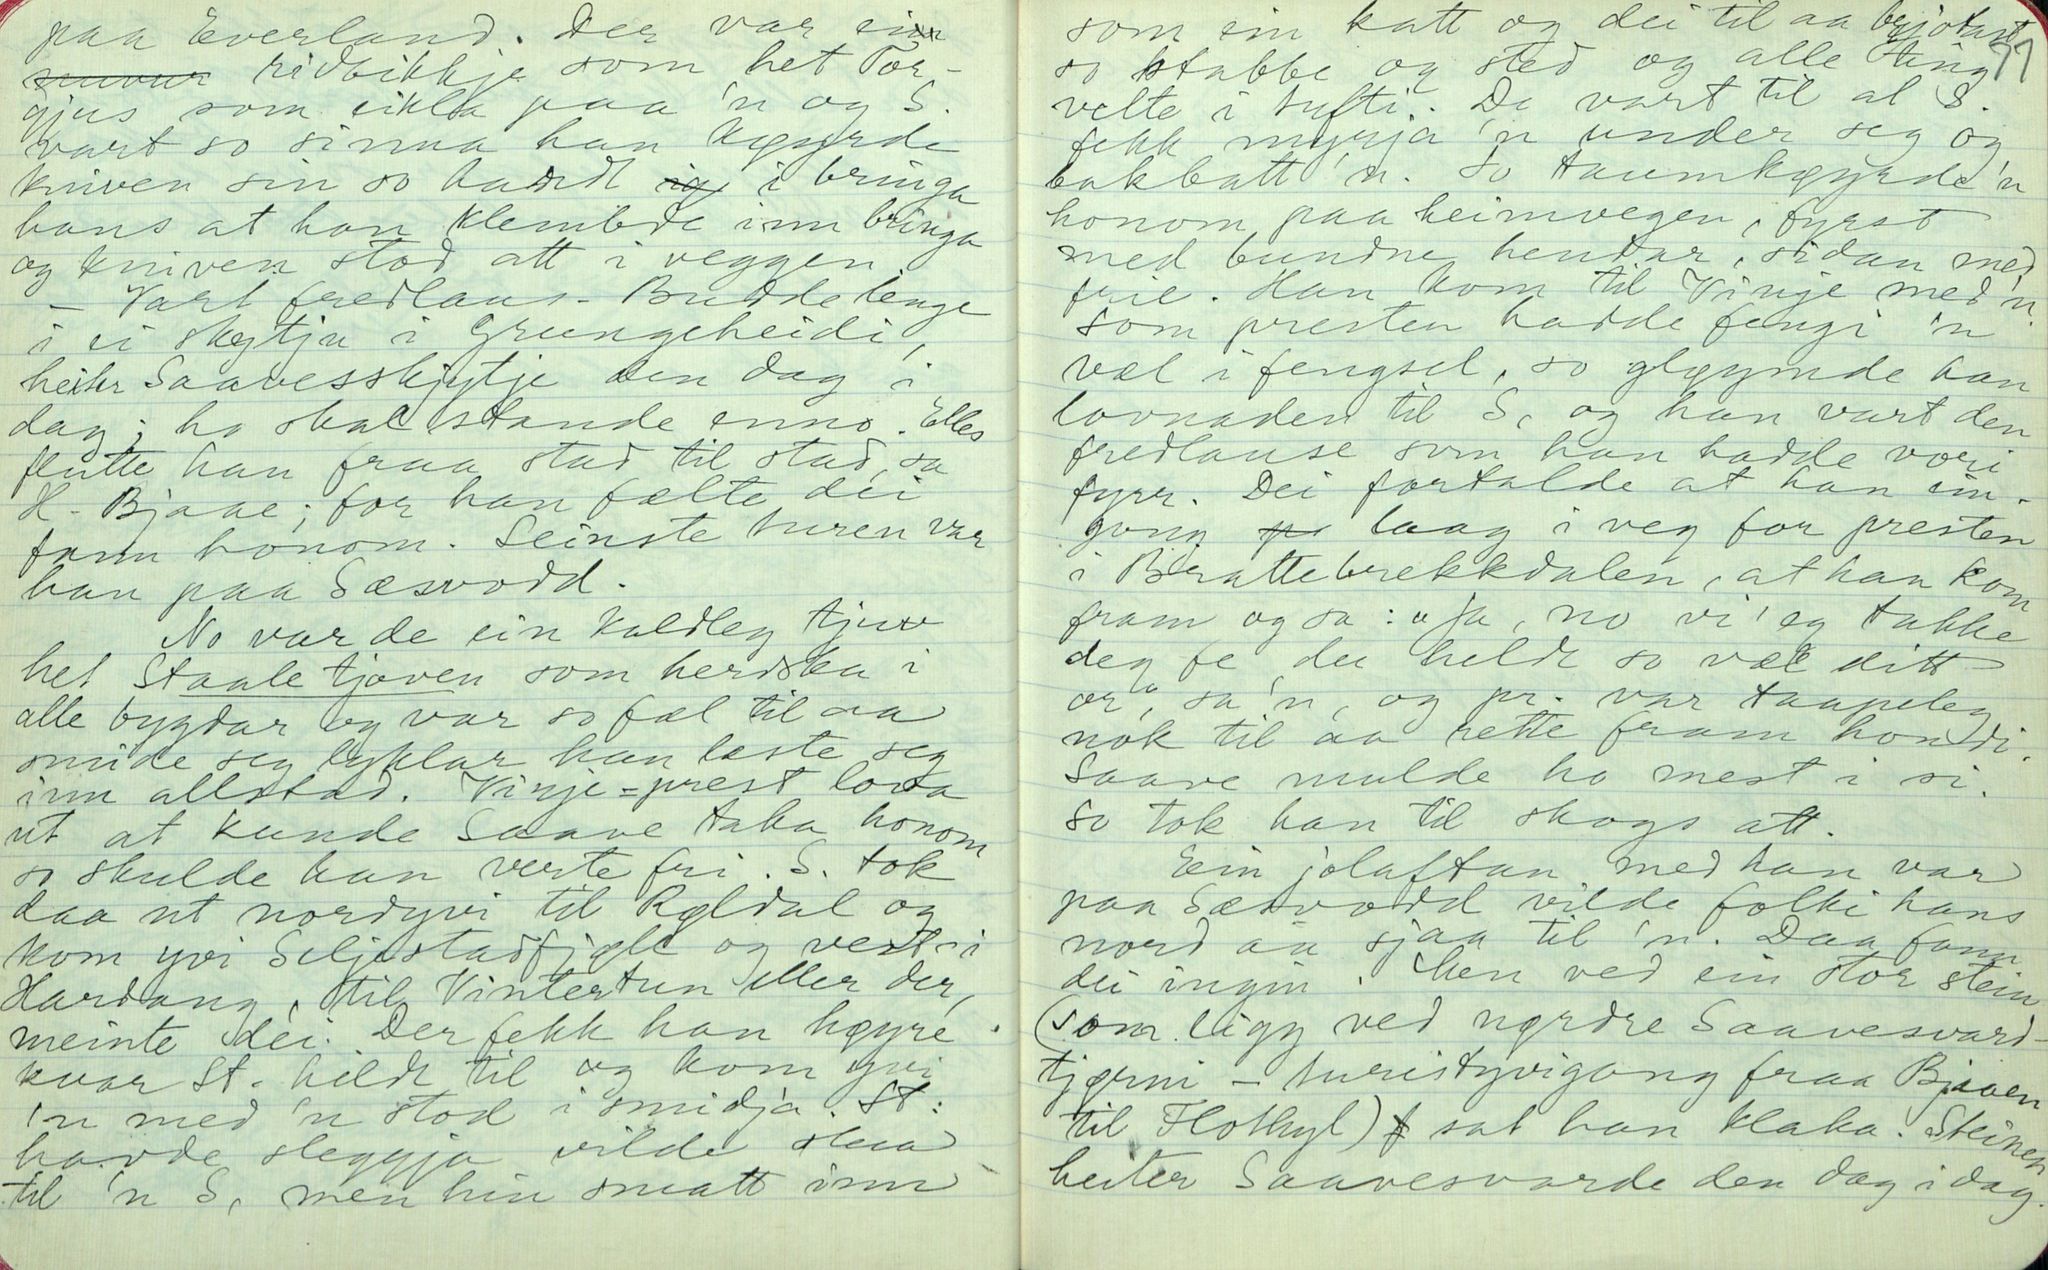 paa Everland. Der var ein
ridbikkje som het Tor-
gjus som eikla paa 'n og S.
vart so sinna han køyrde
kniven sin so hardt i bringa
hans at han klembde inn bringa
og kniven stod att i veggen.
- Vart fredlaus - Budde lenge
i ei skytju i Grungeheidi,
heiter Saavesskjytje den dag i
dag; ho skal stande enno. Elles
flutte han fraa stad til stad, sa
H. Bjaae; for han fælte dei
fann honom. Seinste turen var
han paa Sæsvodd.
No var de ein kaldleg tjuv
het Staaletjoven som herska i
alle bygdar og var so fæl til aa
smide seg lyklar han læste seg
inn allstad. Vinje-prest lova
ut at kunde Saave taka honom
so skulde han verte fri. S. tok
daa ut nordyvi til Røldal og
kom yvi Seljestadfjøll og vest i
Hardang, til Vintertun eller der,
meinte dei. Der fekk han høyre
kvar St. hildt til og kom yvi
'n med 'n stod i smidja. St:
havde sleggja vilde slaa
til 'n S, men hin smatt inn
som ein katt og dei til aa brjotast
77
so stabbe og sted og alle ting
velte i tufti. De vart til at S.
fekk myrja 'n under seg og
bakbatt 'n. So taumkøyrde 'n
honom paa heimvegen, fyrst
med bundne hendar, sidan med
frie. Han kom til Vinje med 'n.
Som presten hadde fengi 'n
væl i fengsel, so gløymde han
lovnaden til S, og han vart den
fredlause som han hadde vori
fyrr. Dei fortalde at han ein-
gong laag i veg for presten
i Brattebrekkdalen, at han kom
fram og sa: "Ja, no vi' eg takke
deg fe du heldt so væl ditt
or", sa 'n, og pr. var taapeleg
nok til aa rette fram hondi.
Saave mulde ho mest i si.
So tok han til skogs att.
Ein jolaftan med han var
paa Sæsvodd vilde folki hans
nord aa sjaa til 'n. Daa fann
dei ingin. Men ved ein stor stein
(som ligg ved nørdre Saavesvard-
tjørni - turistyvigang fraa Bjaaen
til Flothyl) sat han klaka. Steinen
heiter Saavesvarde den dag i dag.